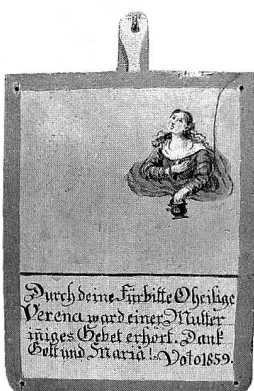 Durch deine Fürbitte O heilige
Verena ward einer Mutter
iñiges Gebet erhört. Dank
Gott und Maria! Voto 1859.